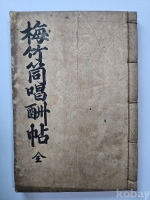 梅竹筒唱酬帖
全
kobay